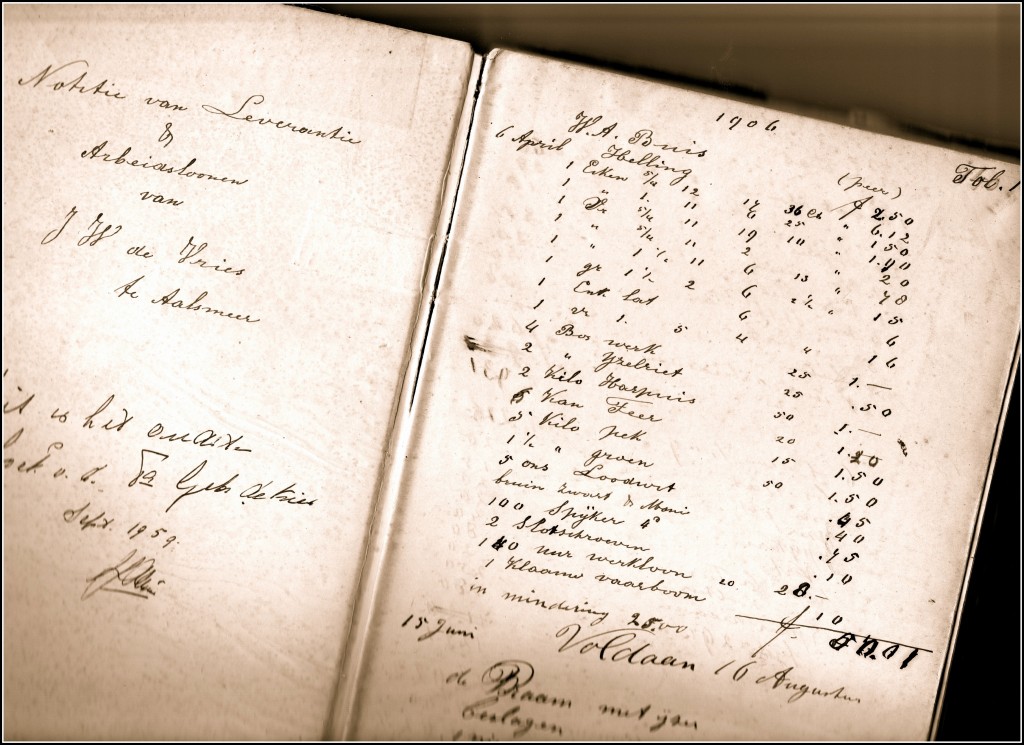 Notitie van Leverantie
&
Arbeidsloonen
van
J W de Vries
te Aalsmeer
it is het oudste
boek v. d. Fa Gebr de Vries
Sept. 1959.
1906
W. A. Buis Fol. 1
6 April Helling (peer)
1 Eiken 5/4 12 14 36 Ct f 2.50
1 " 1. 11 6 25 " 6.12
1 Gr 5/4 11 19 10 " 1.50
1 " 5/4 11 2 " 1.90
1 " 1 1/2 11 6 13 " 20
1 gr 1 1/2 2 6 2 1/2 " 78
1 Enk lat 6 15
1 vr 1. 5 4 " 6
4 Bos werk 16
2 " Yzelriet 25 1.—
2 Kilo Harpuis 25 .50
5 Kan Teer 50 1.—
5 Kilo pek 20 1.20
1 1/2 " groen 15 1.50
5 ons Loodwit 50 1.50
bruin zwart & Mani .45
100 Spijker 4" .40
2 Slotschroeven .75
140 uur werkloon 20 28.—
1 Klaame vaarboom 10
in mindering 25.00 f
Voldaan 16 Augustus
15 Juni
de Praam met ijzer
beslagen